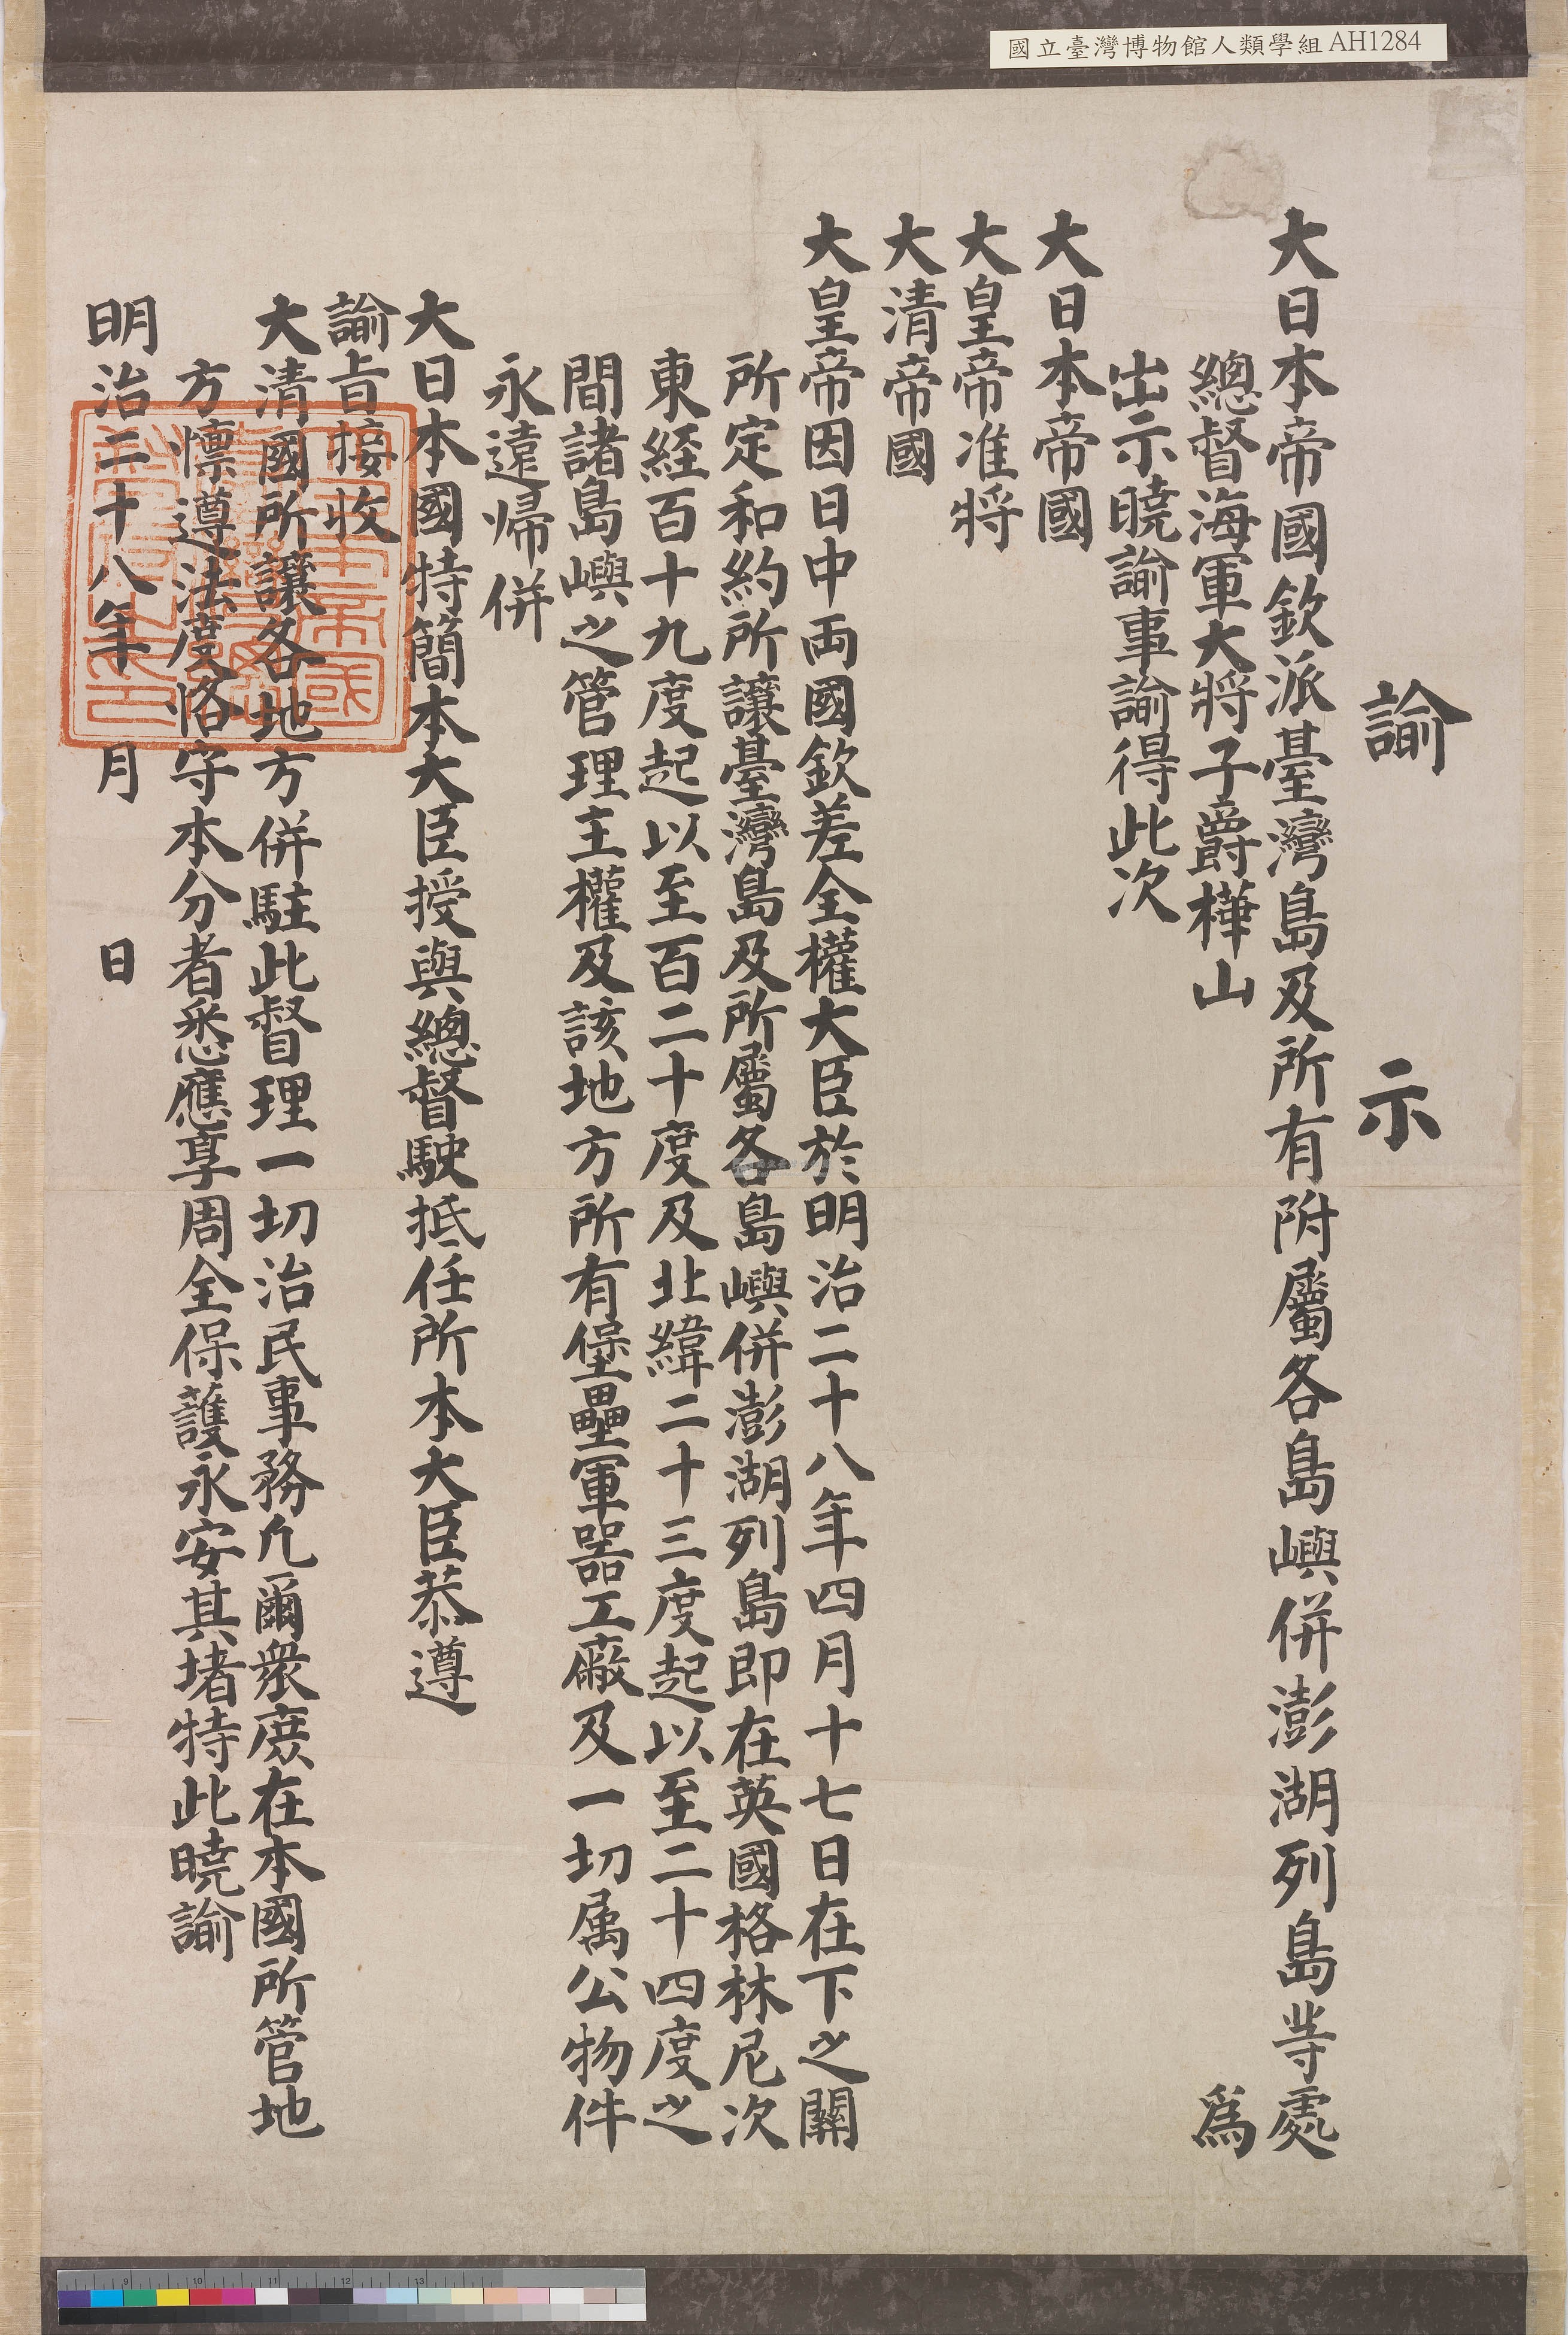 國立臺灣博物館人類學組 AH1284
諭示
大日本帝國欽派臺灣島及所有附屬各島嶼併澎湖列島等處
總督海軍大將子爵樺山 爲
出示曉諭事諭得此次
大日本帝國
大皇帝准將
大清帝國
大皇帝因日中両國欽差全權大臣於明治二十八年四月十七日在下之關
所定和約所讓臺灣島及所屬各島嶼併澎湖列島即在英國格林尼次
東経百十九度起以至百二十度及北緯二十三度起以至二十四度之
間諸島嶼之管理主權及該地方所有堡壘軍器工廠及一切属公物件
永遠帰併
大日本國特簡本大臣授與總督駛抵任所本大臣恭遵
諭旨接收
大清國所讓各地方併駐此督理一切治民事務凡爾衆庶在本國所管地
方懍遵法度恪守本分者悉應享周全保護永安其堵特此曉諭
明治二十八年 月 日